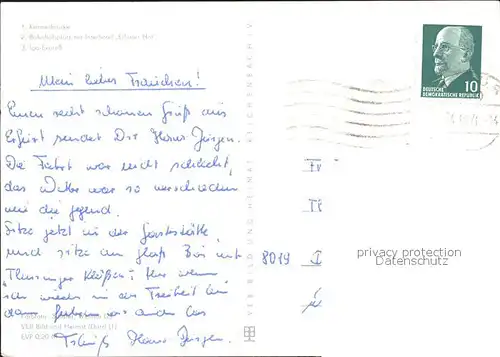 1. Krämerbrücke
2. Bahnhofsplatz mit Interhotel „Erfurter Hof“
Mein liebes Frauchen!
Einen recht schönen Gruß aus
Erfurt sendet Dir Hans Jürgen.
Die Fahrt war nicht schlecht,
das Wetter war so verschieden
wie die Gegend.
Sitze jetzt in der Gaststätte
und sitze am Glas Bier mit
"Thüringer Klößen". Hier wenn
ich wieder in der Freiheit bin
dann haben wir auch das
Tschüß Hans Jürgen.
VEB Bild und Heimat
EVP 0,20
VEB BILD UND HEIMAT REICHENBACH V.
8019
DEUTSCHE
DEMOKRATISCHE REPUBLIK
10
privacy protection
Datenschutz